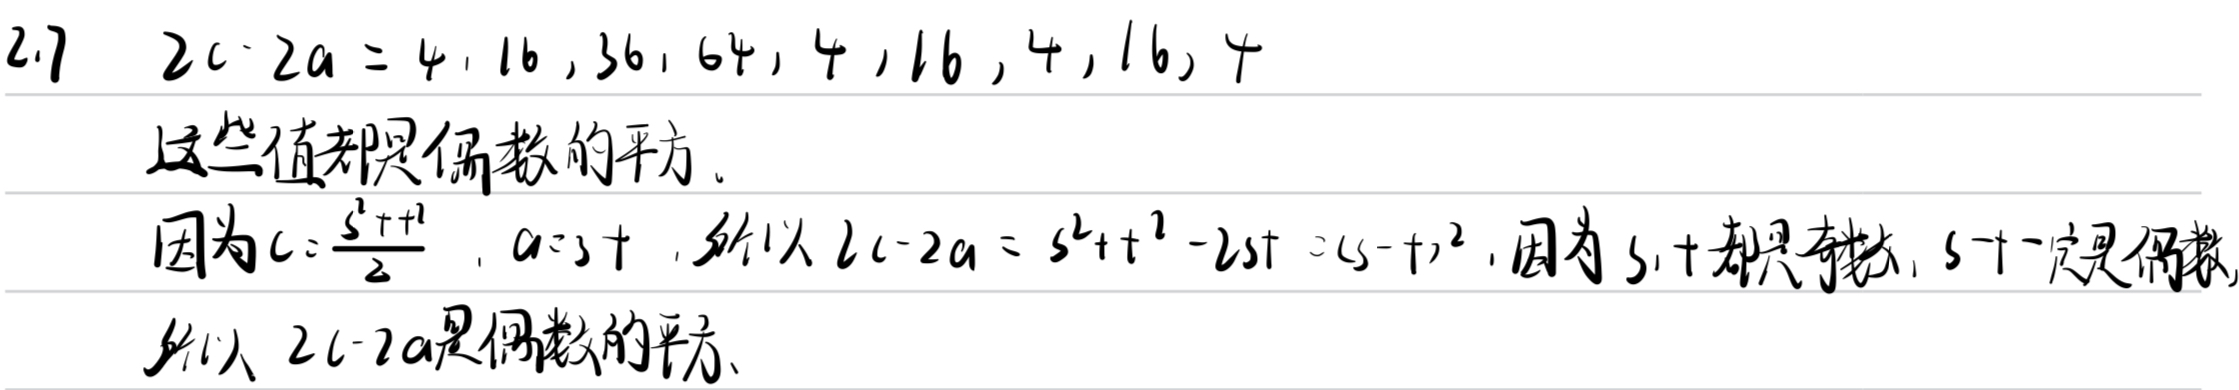 2.7 2c-2a = 4, 16, 36, 64, 4, 16, 4, 16, 4
这些值都是偶数的平方.
因为c=\frac{s²+t²}{2}, a=st, 所以2c-2a=s²+t²-2st=(s-t)², 因为s,t都是奇数, s-t一定是偶数,
所以2c-2a是偶数的平方、